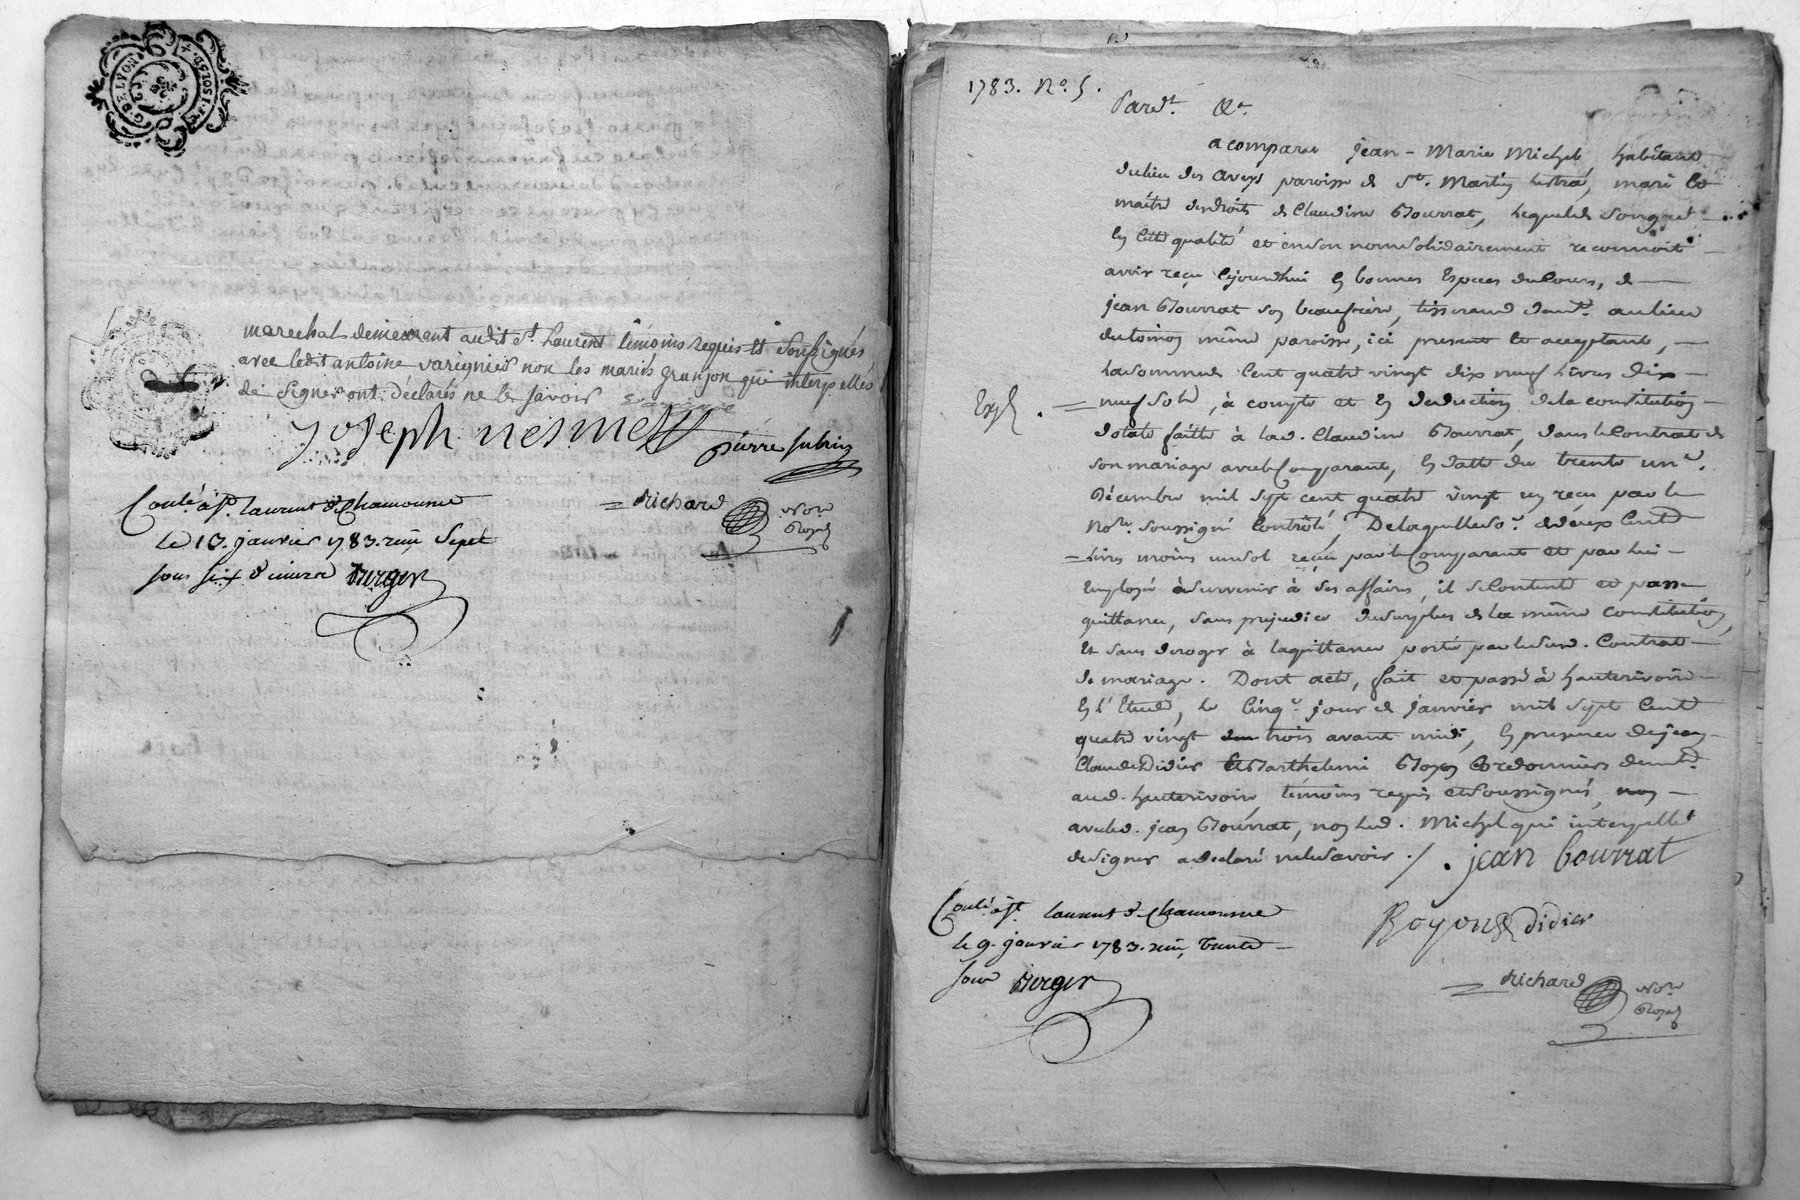 G. DE LYON
marechal demeurant audit St. Laurent témoins requis et soussignés
avec ledit antoine varignier non les mariés granjon qui interpellés
de signer ont déclarés ne le savoir
joseph nesmes
pierre
Conlé. à St. laurent de Chamousset
Le 13. janvier 1783. reçu Sept
sous six deniers Berger
Richard Nore. Royal
1783. No. 5.
Pardt. &a.
a comparu jean-Marie Michel habitant
du lieu des aveys paroisse de St. Martin lestra, mari et
maitre des droits de Claudine Bourrat, lequel de son gré
en cette qualité et en son nom solidairement reconnoit
avoir reçu cejourdhui en bonnes Especes du Cours, de
jean Bourrat son beaufrère, tisserand demt. au lieu
du même paroisse, ici present et acceptant,
la somme de Cent quatre vingt dix neuf livres dix
Exp neuf sols, à compte et en deduction de la constitution
dotale faitte à lad. Claudine Bourrat, dans le Contrat de
son mariage avec le Comparant, en datte du trente un
Décembre mil sept cent quatre vingt un reçu par le
Nore. soussigné Contrôlé, De laquelle so. de deux Cent
livres moins un sol reçue par le Comparant et par lui
Employé à survenir à ses affaires, il se Contente et passe
quittance, sans prejudice du surplus de la même Constitution,
Et sans deroger à la quittance porté par le susd. Contrat
de mariage. Dont acte, fait et passé à hauterivoire
en l'Etude, le Cinq. jour de janvier mil sept Cent
quatre vingt trois avant midi, en presence de jean
Claude Didier et Barthelemi Royon Cordonniers demt.
aud. hauterivoire, témoins requis et soussignés,
avec led. jean Bourrat, non led. Michel qui interpellé
de signer a declaré ne le savoir ./. jean bourrat
Royon Didier
Conlé. à St. laurent de Chamousset
le 9. janvier 1783. reçu Trente
sous Berger
Richard Nore. Royal